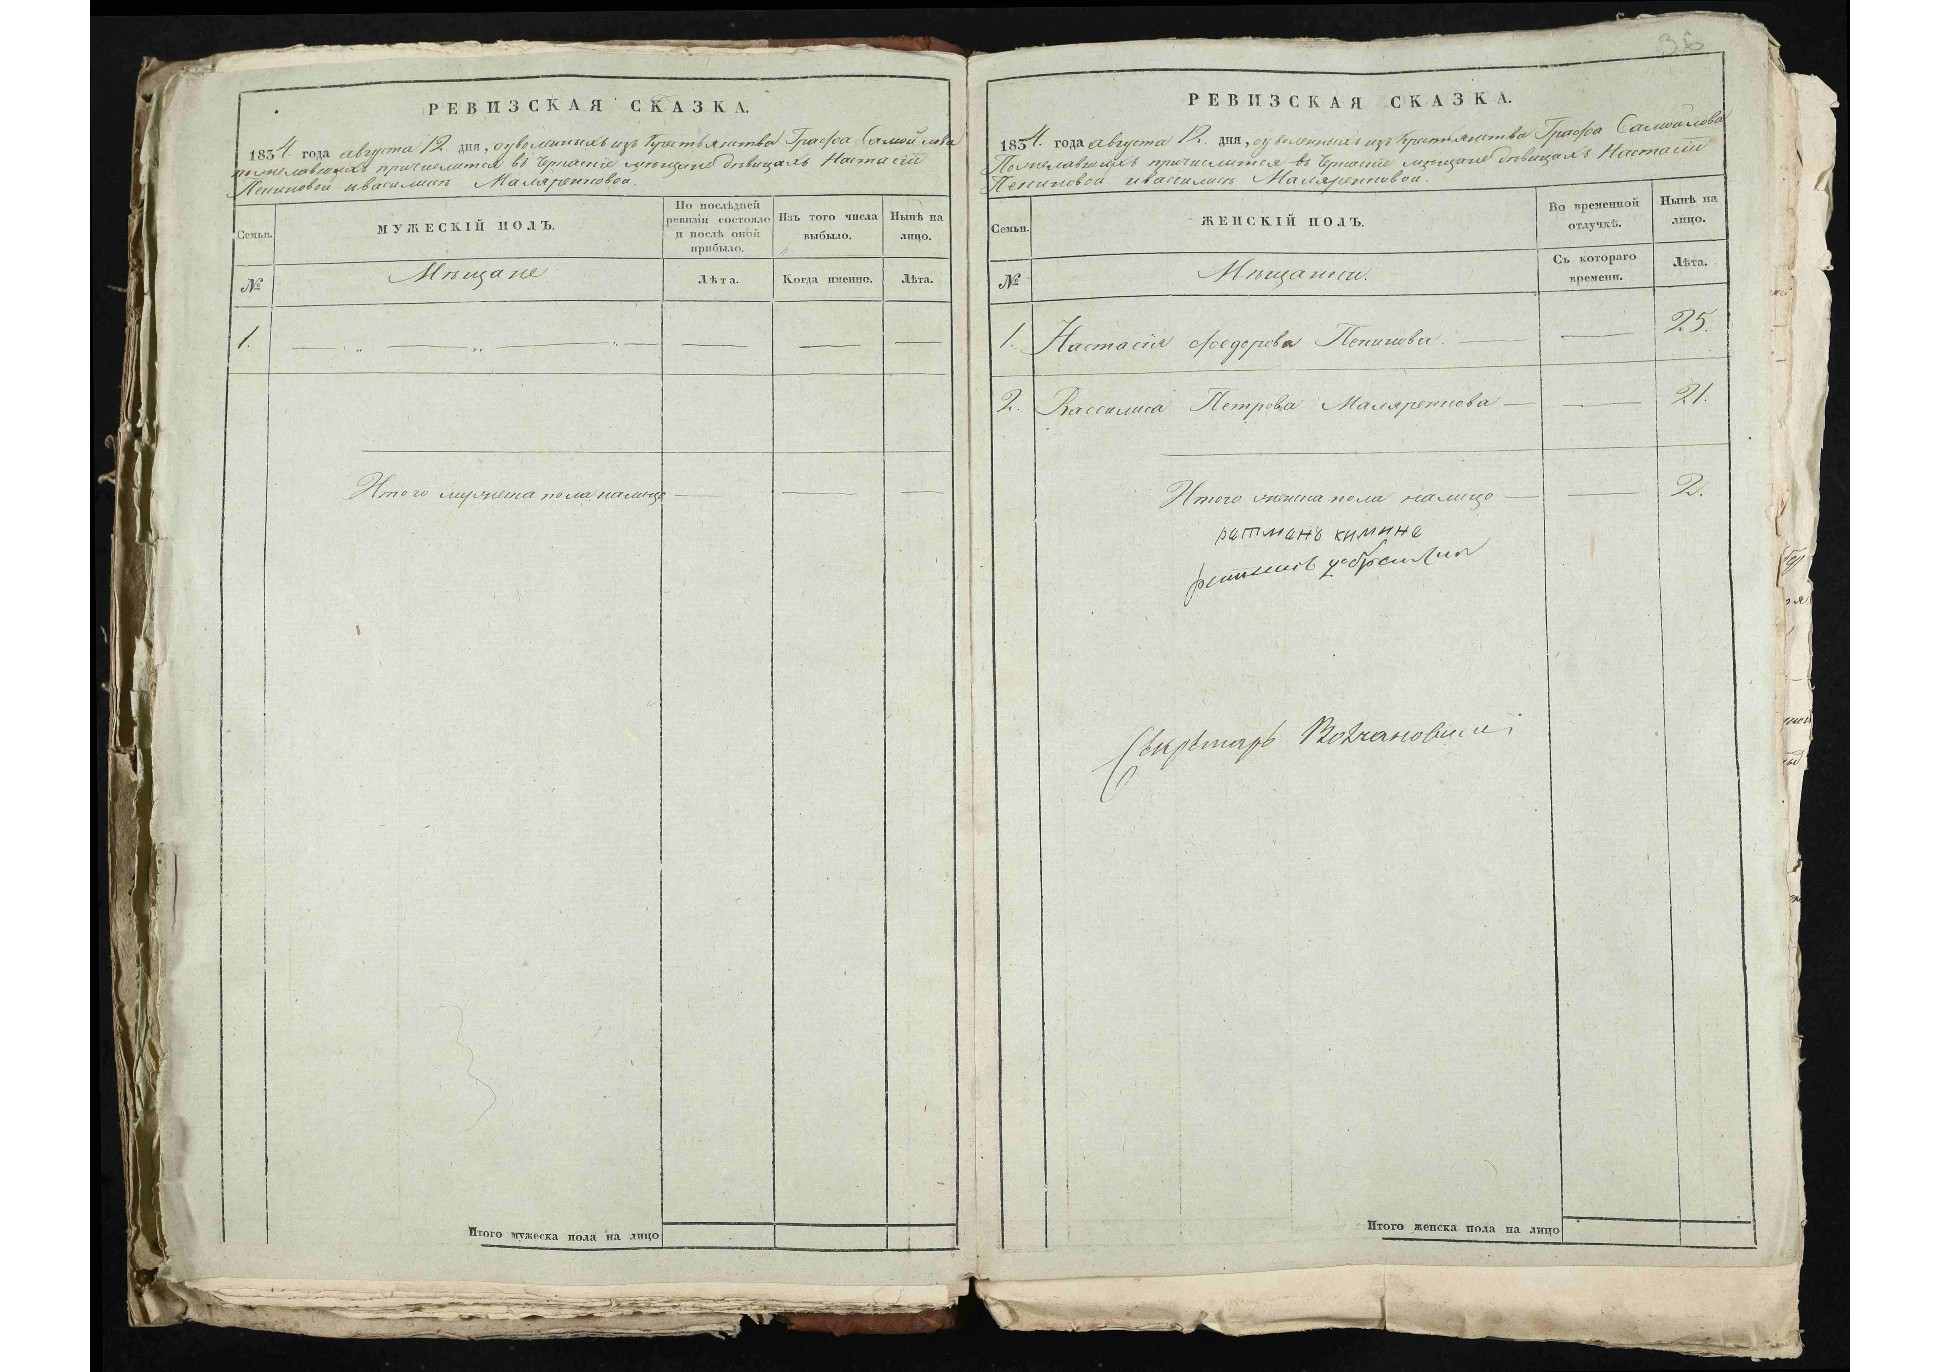 РЕВИЗСКАЯ СКАЗКА.
1834 года августа 12 дня, о уволенныхъ изъ Крестьянства Графа Самойлова
пожелавшихъ причислится въ Черкаскіе мѣщане дѣвицахъ Настасіи
Пениновой и василисѣ Маляренковой.
Семьи. МУЖЕСКІЙ ПОЛЪ. По послѣдней ревизіи состояло и послѣ оной прибыло. Изъ того числа выбыло. Нынѣ на лицо.
№ Мѣщане Лѣта. Когда именно. Лѣта.
1.
Итого мужеска пола налицо
Итого мужеска пола на лицо
36
РЕВИЗСКАЯ СКАЗКА.
1834 года августа 12. дня, о уволенныхъ из Крестьянства Графа Самойлова
Пожелавшихъ причислится въ Черкаскіе мѣщане дѣвицахъ Настасіи
Пениновой и василисѣ Маляренковой.
Семьи. ЖЕНСКІЙ ПОЛЪ. Во временной отлучкѣ. Нынѣ на лицо.
№ Мѣщанки. Съ котораго времени. Лѣта.
1. Настасія Федорова Пенинова. 25.
2. Вассилиса Петрова Маляренкова 21.
Итого женска пола налицо 2.
ратманъ
ратманъ
Секретарь
Итого женска пола на лицо